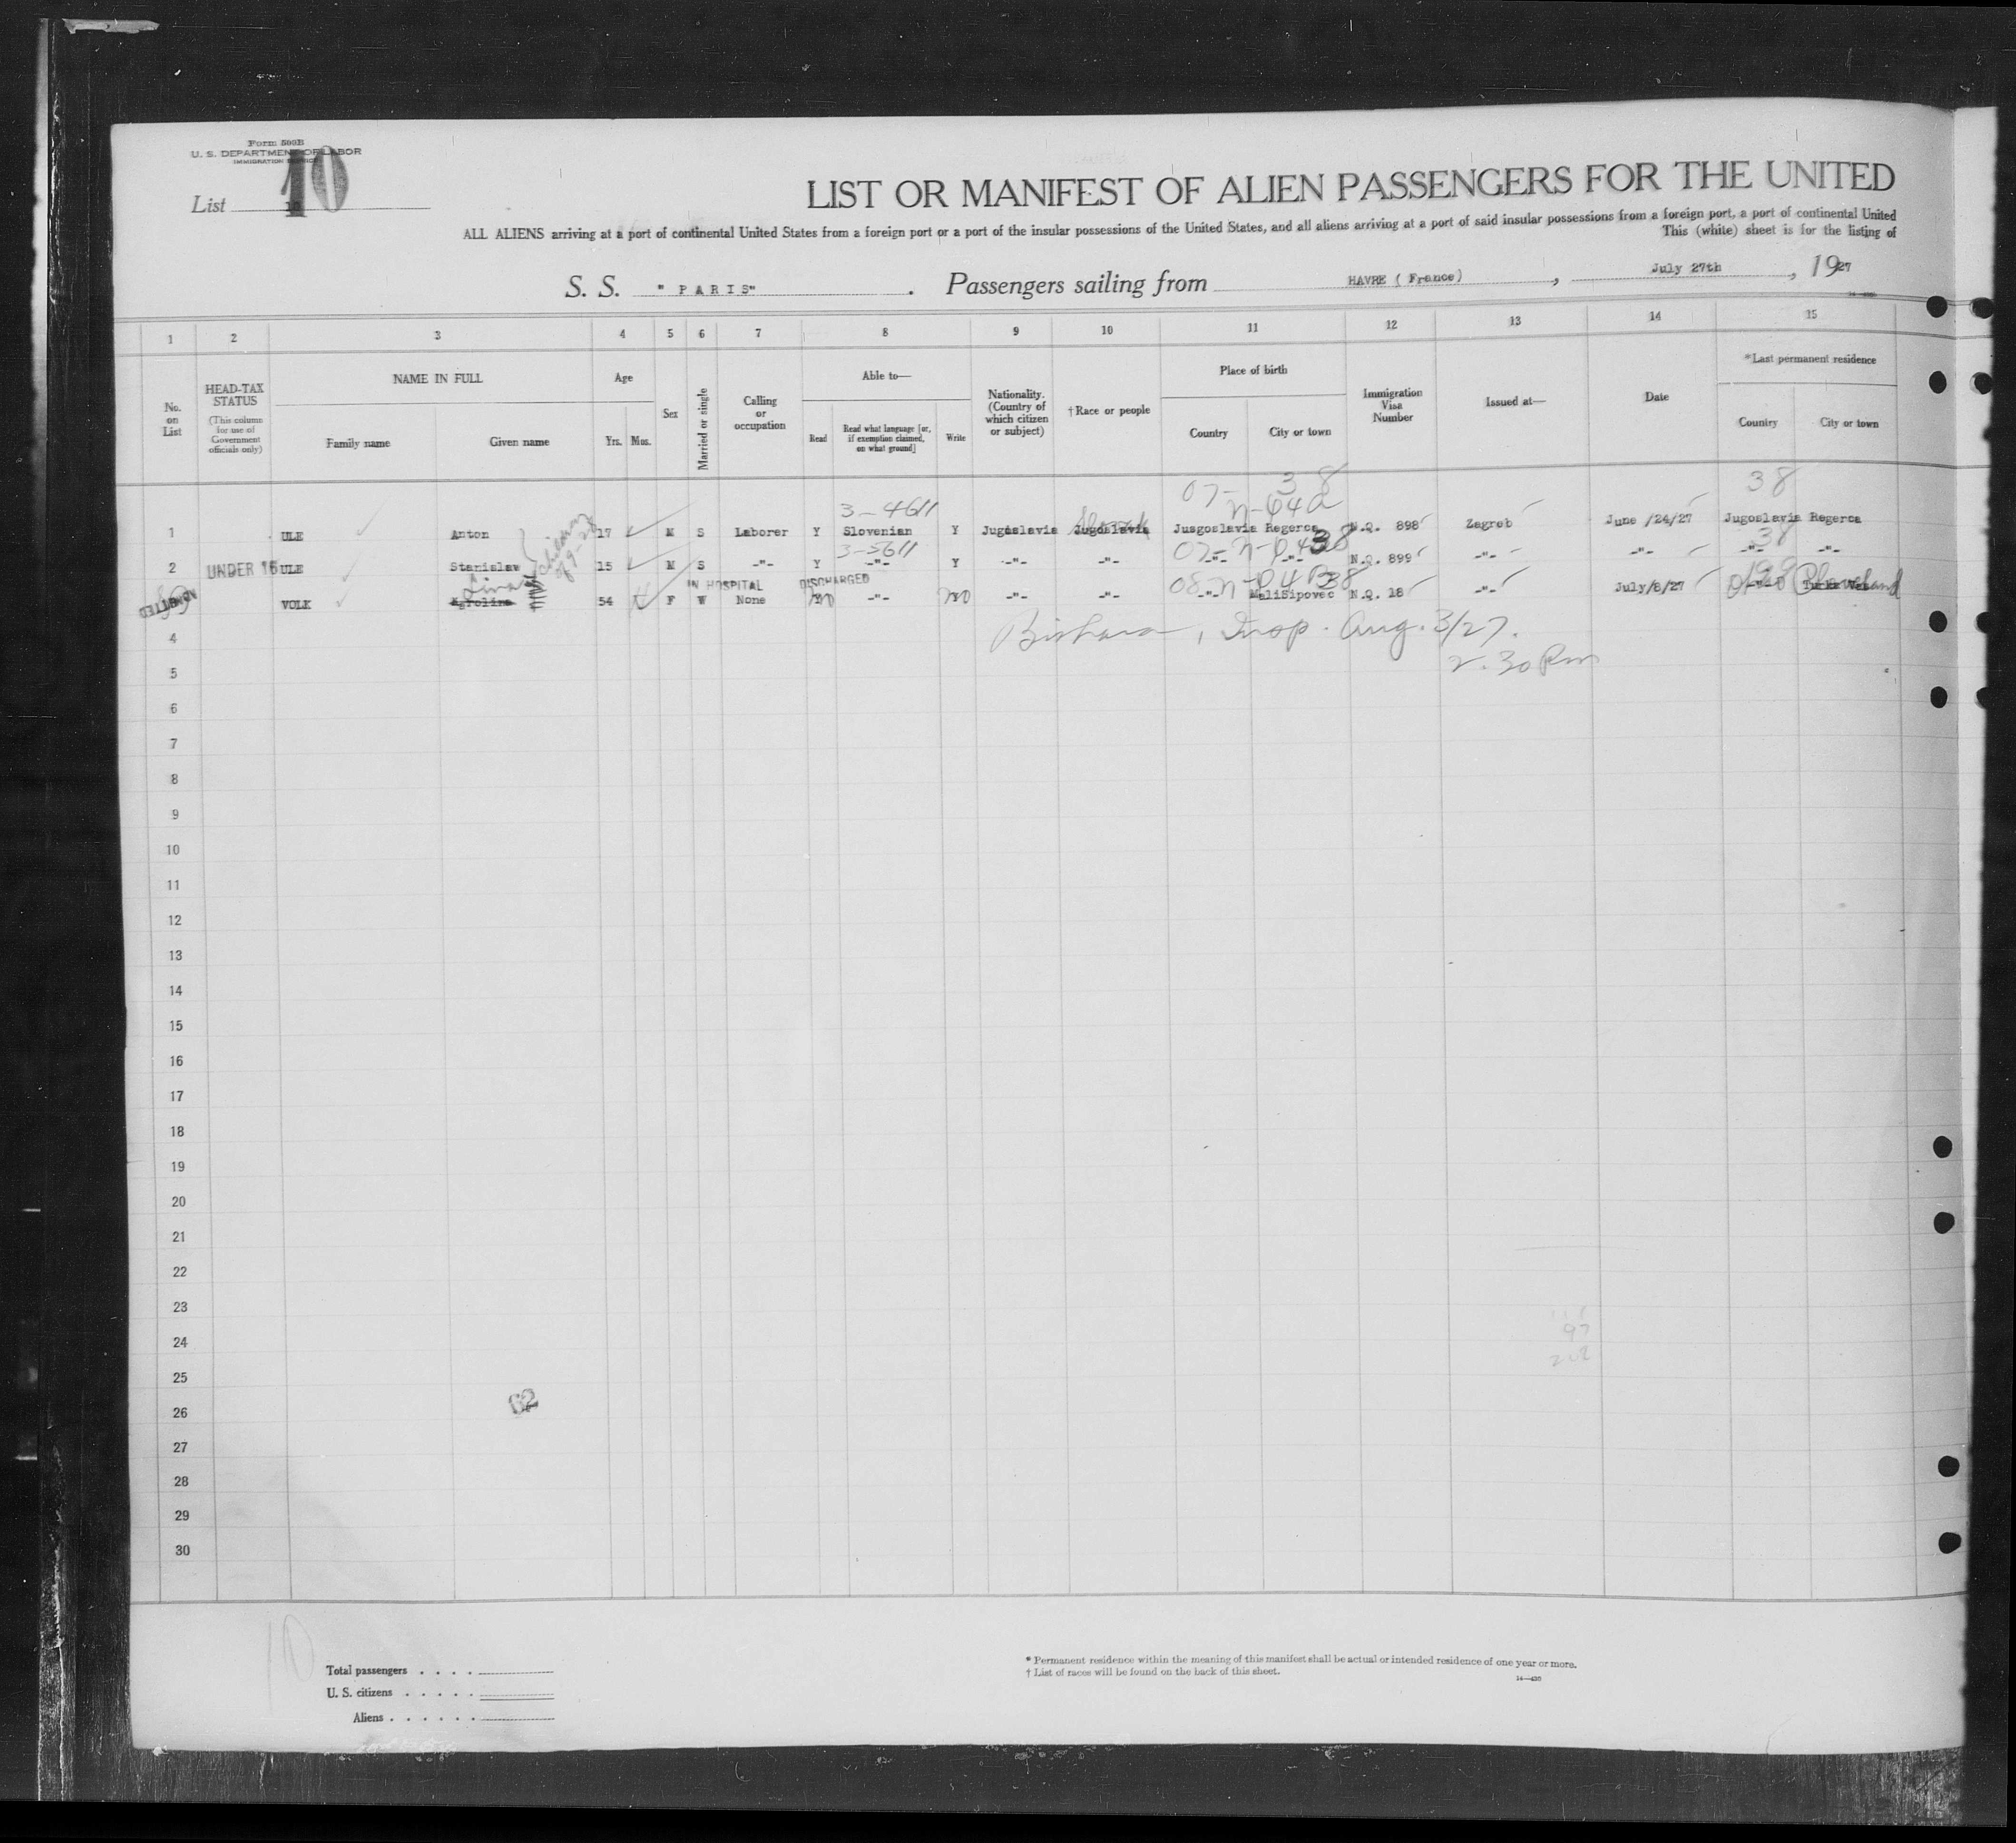 Form 500B
U. S. DEPARTMENT OF LABOR
IMMIGRATION SERVICE
List 10
10
LIST OR MANIFEST OF ALIEN PASSENGERS FOR THE UNITED
ALL ALIENS arriving at a port of continental United States from a foreign port or a port of the insular possessions of the United States, and all aliens arriving at a port of said insular possessions from a foreign port, a port of continental United
This (white) sheet is for the listing of
S. S. " PARIS" . Passengers sailing from HAVRE ( France) , July 27th , 1927
1 2 3 4 5 6 7 8 9 10 11 12 13 14 15
No. on List
HEAD-TAX STATUS
(This column for use of Government officials only)
NAME IN FULL
Family name
Given name
Age
Yrs. Mos.
Sex
Married or single
Calling or occupation
Able to—
Read
Read what language [or, if exemption claimed, on what ground]
Write
Nationality. (Country of which citizen or subject)
†Race or people
Place of birth
Country
City or town
Immigration Visa Number
Issued at—
Date
*Last permanent residence
Country
City or town
3-4611 07- 38 n-64a 38
1 ULE Anton 17 M S Laborer Y Slovenian Y Jugoslavia Jugoslavia Jusgoslavia Regerca N.Q. 898 Zagreb June /24/27 Jugoslavia Regerca
children
3-5611 07- 38 38
2 UNDER 16 ULE Stanislaw 15 M S -"- Y -"- Y -"- -"- -"- -"- N.Q. 899 -"- -"- -"- -"-
IN HOSPITAL DISCHARGED
ADMITTED VOLK 54 F W None no -"- no -"- -"- -"- MaliSipovec N.Q. 18 -"- July/8/27 -"- Cleveland
4 Insp. Aug. 3/27.
5 2.30 Pm
6
7
8
9
10
11
12
13
14
15
16
17
18
19
20
21
22
23
24 97
25
26 62
27
28
29
30
10
Total passengers . . . .
U. S. citizens . . . . .
Aliens . . . . . .
* Permanent residence within the meaning of this manifest shall be actual or intended residence of one year or more.
† List of races will be found on the back of this sheet.
14—430